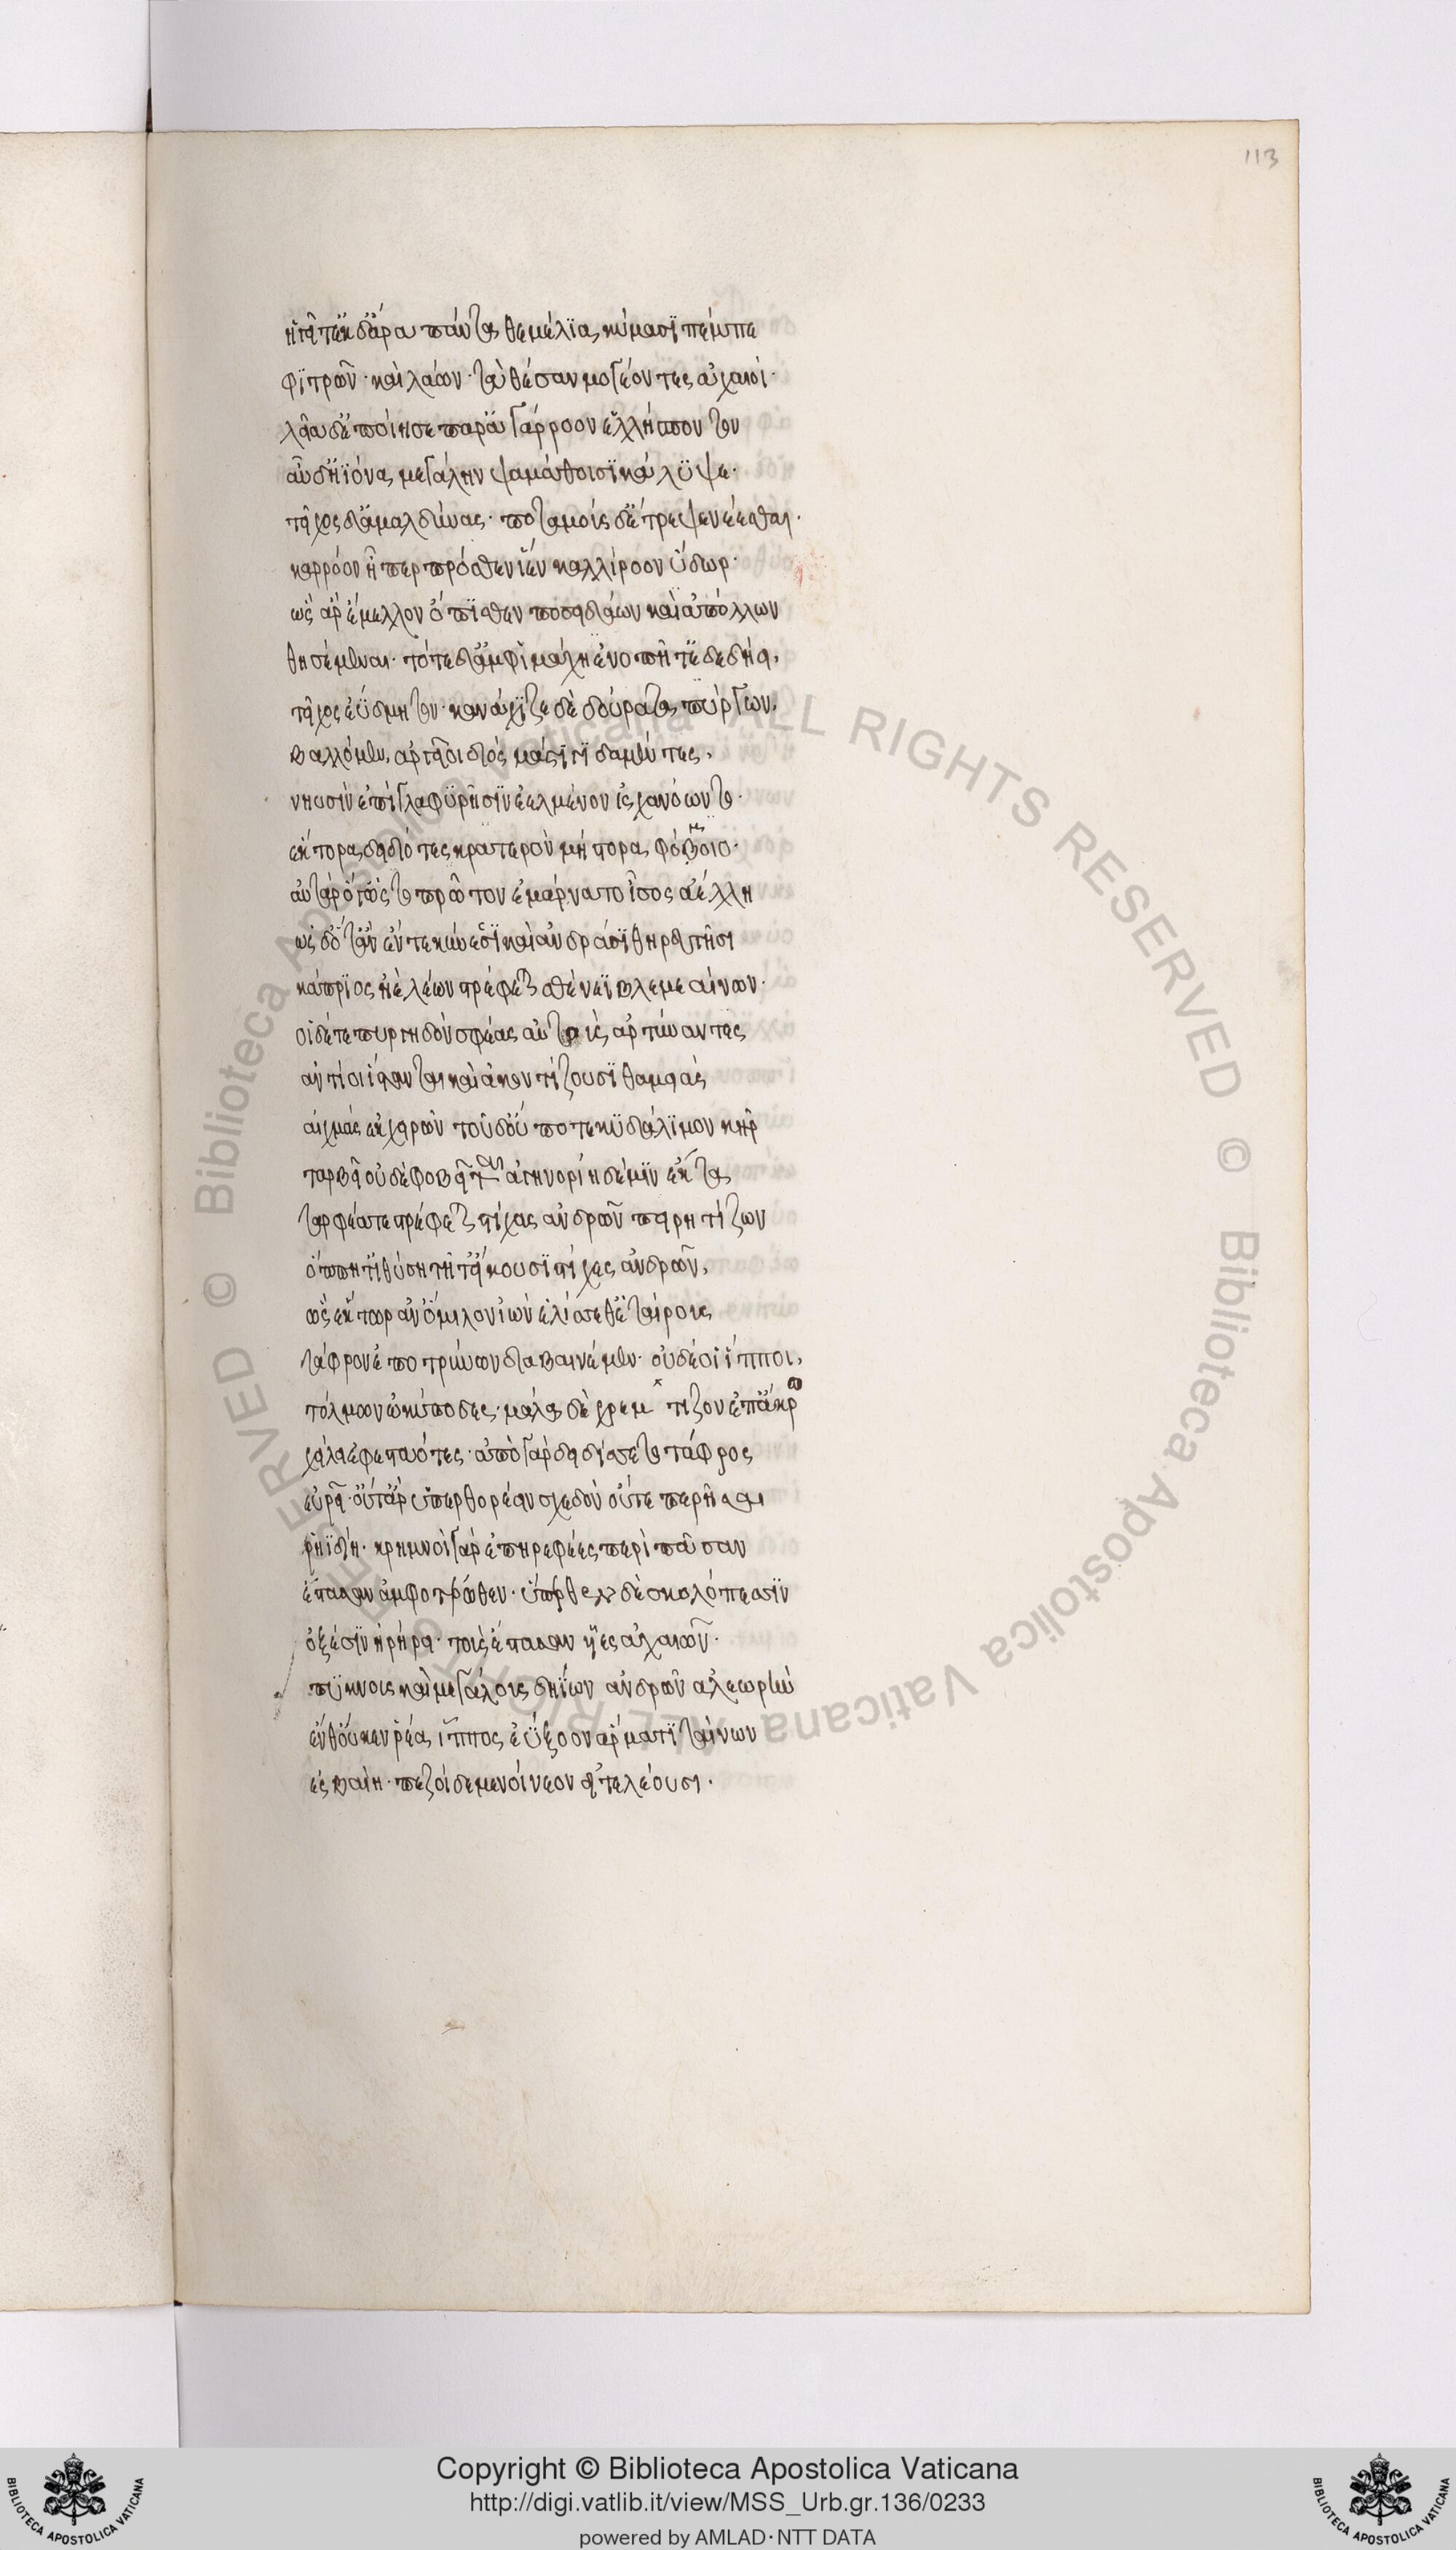 113
ἡγεῖτ' ἐκ δ' ἄρα πάντα θεμείλια κύμασι πέμπε
φιτρῶν · καὶ λάων · τὰ θέσαν μογέοντες ἀχαιοί ·
λεῖα δ' ἐποίησε παρ' ἀγάρροον ἑλλήσποντον
αὖ δ' ἠϊόνα μεγάλην ψαμάθοισι κάλυψε ·
τεῖχος δ' ἀμαλδύνας · ποταμοὺς δ' ἔτρεψε νέεσθαι ·
καρρόον ἧπερ πρόσθεν ἵεν καλλίροον ὕδωρ ·
ὣς ἄρ' ἔμελλον ὄπισθεν ποσειδάων καὶ ἀπόλλων
θησέμεναι · τότε δ' ἀμφὶ μάχη ἐνοπή τε δεδήει,
τεῖχος ἐΰδμητον · κανάχιζε δὲ δούρατα πύργων,
βαλλόμεν, ἀργεῖοι διὸς μάστιγι δαμέντες,
νηυσὶν ἐπὶ γλαφυρῇσιν ἐελμένοι ἰσχανόωντο ·
ἕκτορα δειδιότες κρατερὸν μήστωρα φόβοιο ·
αὐτὰρ ὅγ' ὡς τὸ πρῶτον ἐμάρνατο ἶσος ἀέλλῃ
ὡς δ' ὅτ' ἂν ἔν τε κύνεσσι καὶ ἀνδράσι θηρευτῇσι
κάπριος ἠὲ λέων στρέφεται σθένεϊ βλεμεαίνων ·
οἱ δέ τε πυργηδὸν σφέας αὐτοὺς ἀρτύναντες
ἀντίοι ἵστανται καὶ ἀκοντίζουσι θαμειὰς
αἰχμὰς ἐκ χειρῶν τοῦ δ' οὔποτε κυδάλιμον κῆρ
ταρβεῖ οὐδὲ φοβεῖται ἀγηνορίη δέ μιν ἔκτα
ταρφέα τε στρέφεται στίχας ἀνδρῶν πειρητίζων
ὅππη τ' ἰθύση τῇ τ' εἴκουσι στίχες ἀνδρῶν,
ὣς ἕκτωρ ἀν' ὅμιλον ἰὼν ἐλίσσεθ' ἑταίρους
τάφρον ἐποτρύνων διαβαινέμεν · οὐδέ οἱ ἵπποι,
τόλμων ὠκύποδες · μάλα δὲ χρεμέτιζον ἐπ' ἄκρῳ
χείλει ἐφεσταότες · ἀπὸ γὰρ δειδίσσετο τάφρος
εὐρεῖ · οὔτ' ἄρ' ὑπερθορέειν σχεδὸν οὔτε περῆσαι
ῥηϊδίη · κρημνοὶ γὰρ ἐπηρεφέες περὶ πᾶσαν
ἕστασαν ἀμφοτέρωθεν · ὕπερθεν δὲ σκολόπεσσιν
ὀξέσιν ἠρήρει · τοὺς ἕστασαν υἷες ἀχαιῶν ·
πυκνοὺς καὶ μεγάλους δηΐων ἀνδρῶν ἀλεωρήν
ἔνθ' οὔ κεν ῥέα ἵππος ἐΰξοον ἅρμα τιταίνων
ἐς βαίη · πεζοὶ δὲ μενοίνεον εἰ τελέουσι ·
Copyright © Biblioteca Apostolica Vaticana
http://digi.vatlib.it/view/MSS_Urb.gr.136/0233
powered by AMLAD·NTT DATA